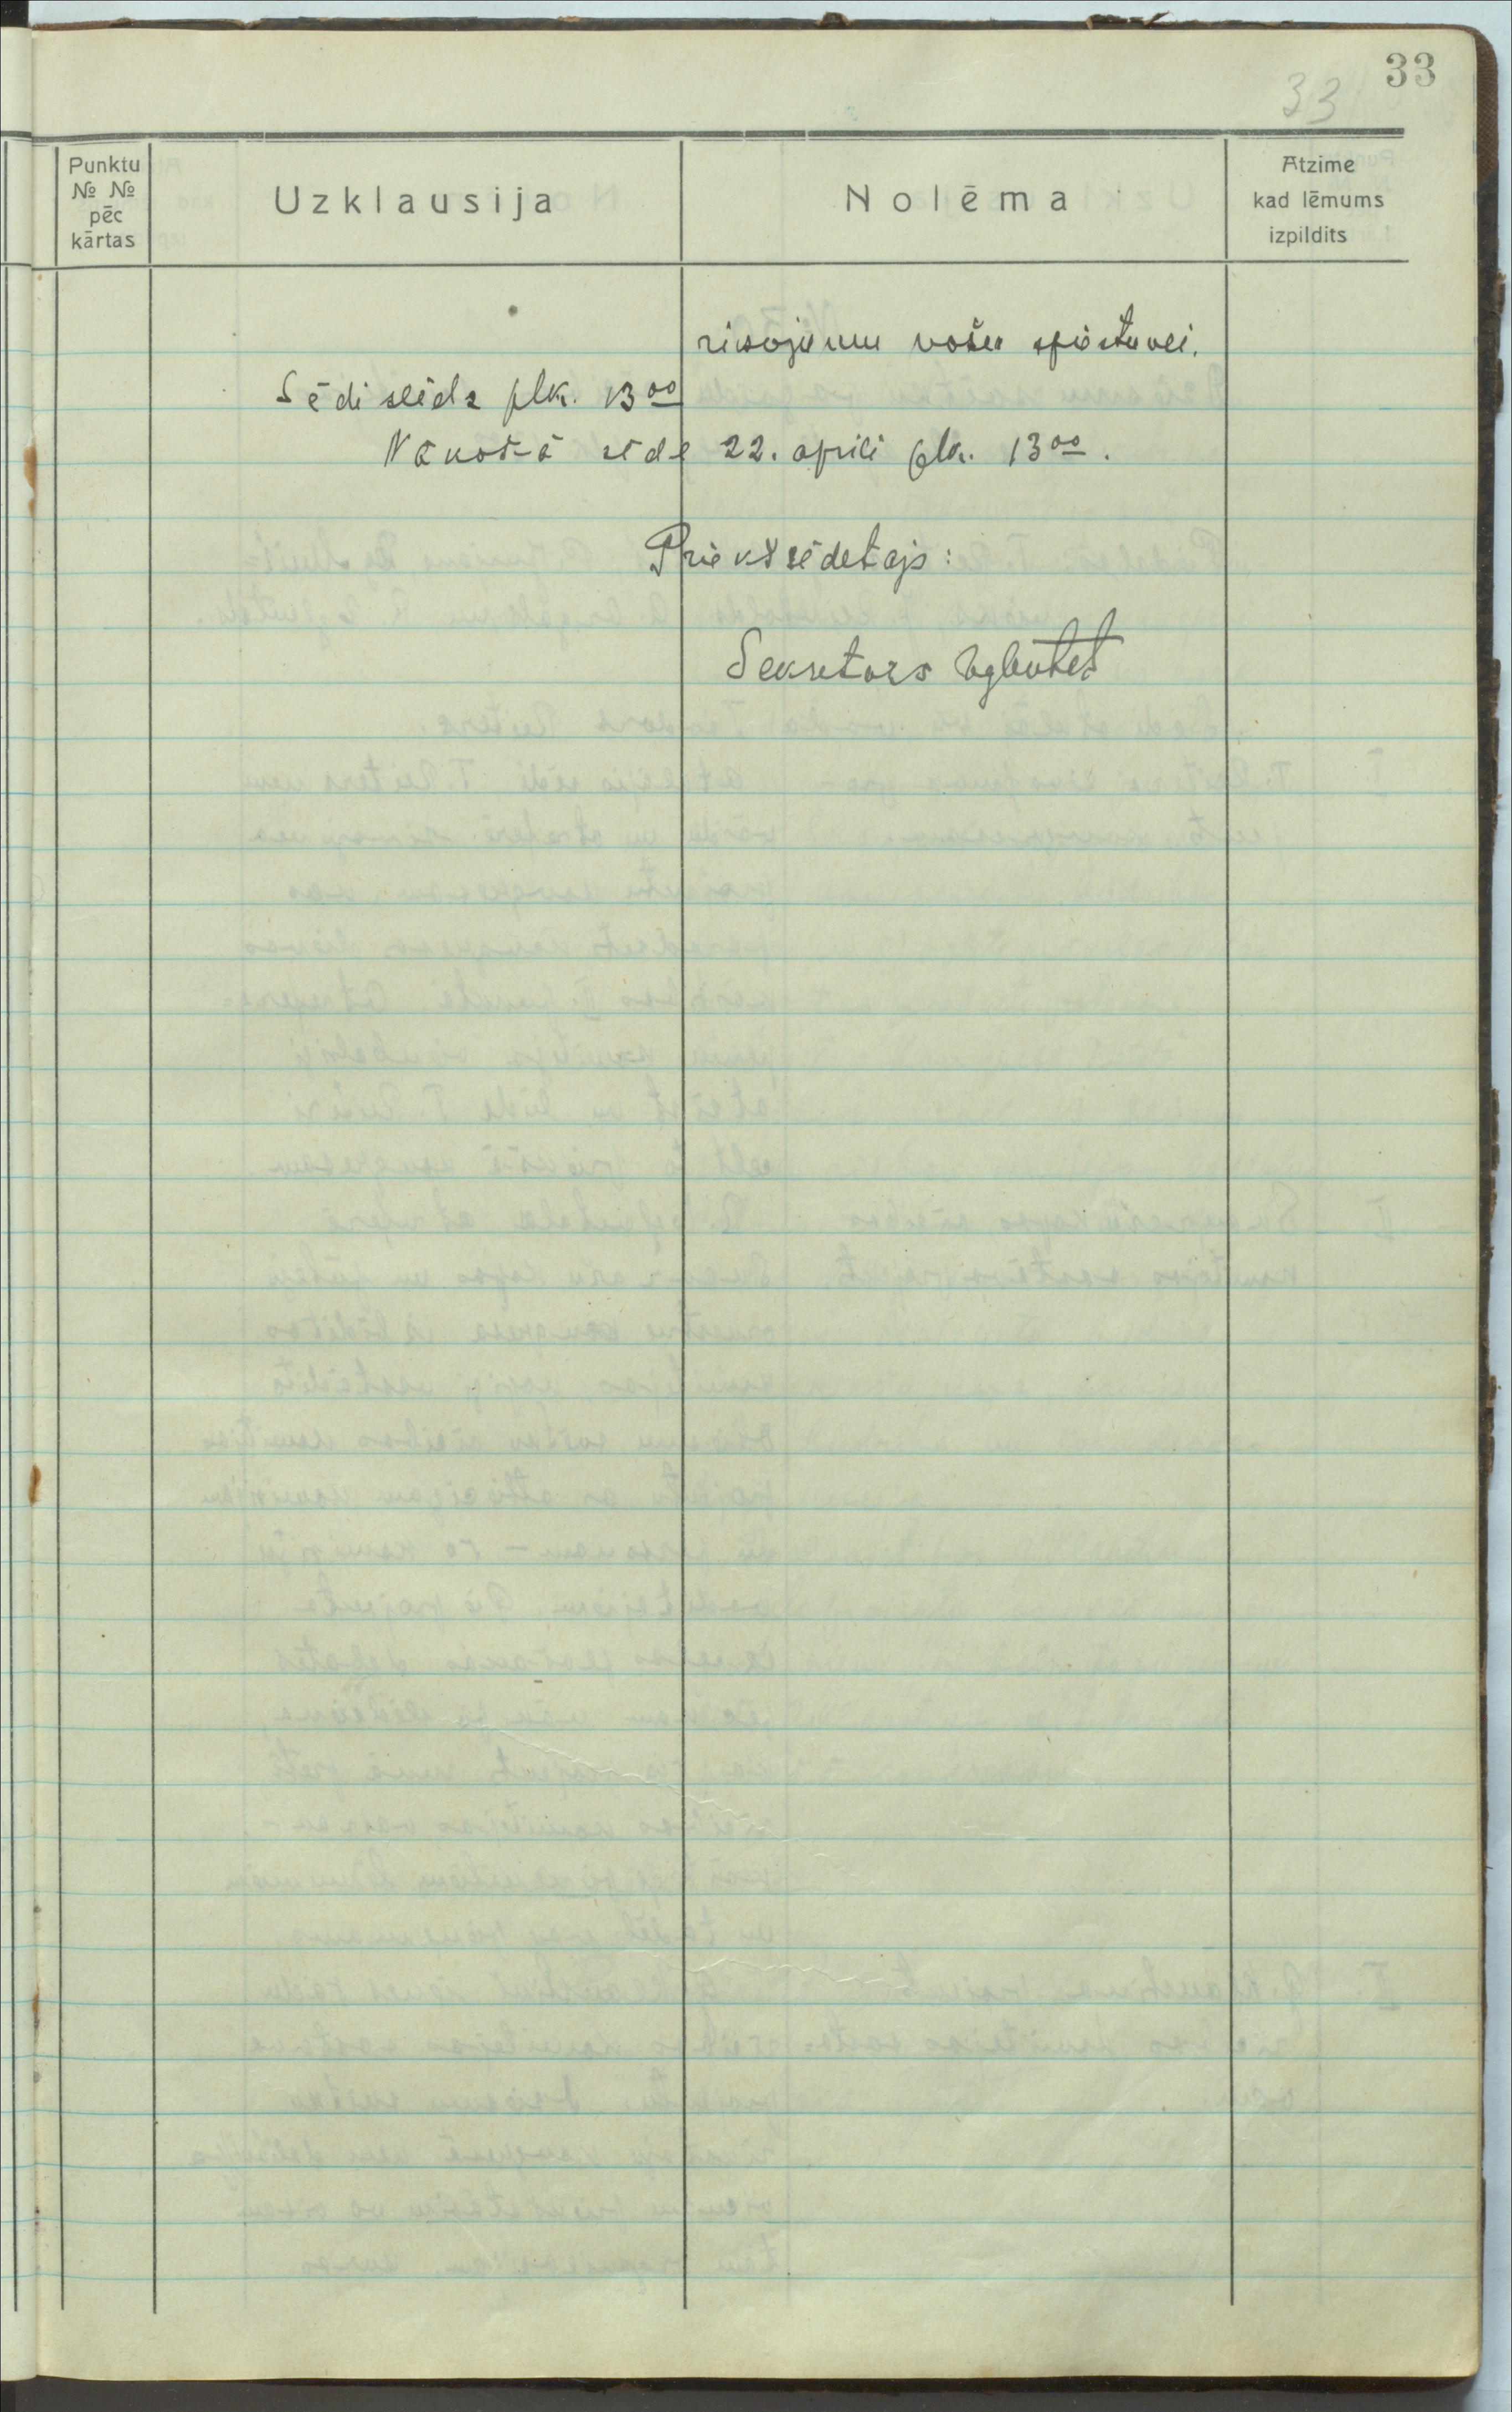 33
33
Punktu
№ №
pēc
kārtas
Uzklausija
Nolēma
Atzime
kad lēmums
izpildits
risojumu nošu spiestuvei.
Sēdi slēdz plk. 13 00
Nākošā sēde 22. aprilī plk. 13 00.
Priekšsēdetajs:
Sekretars